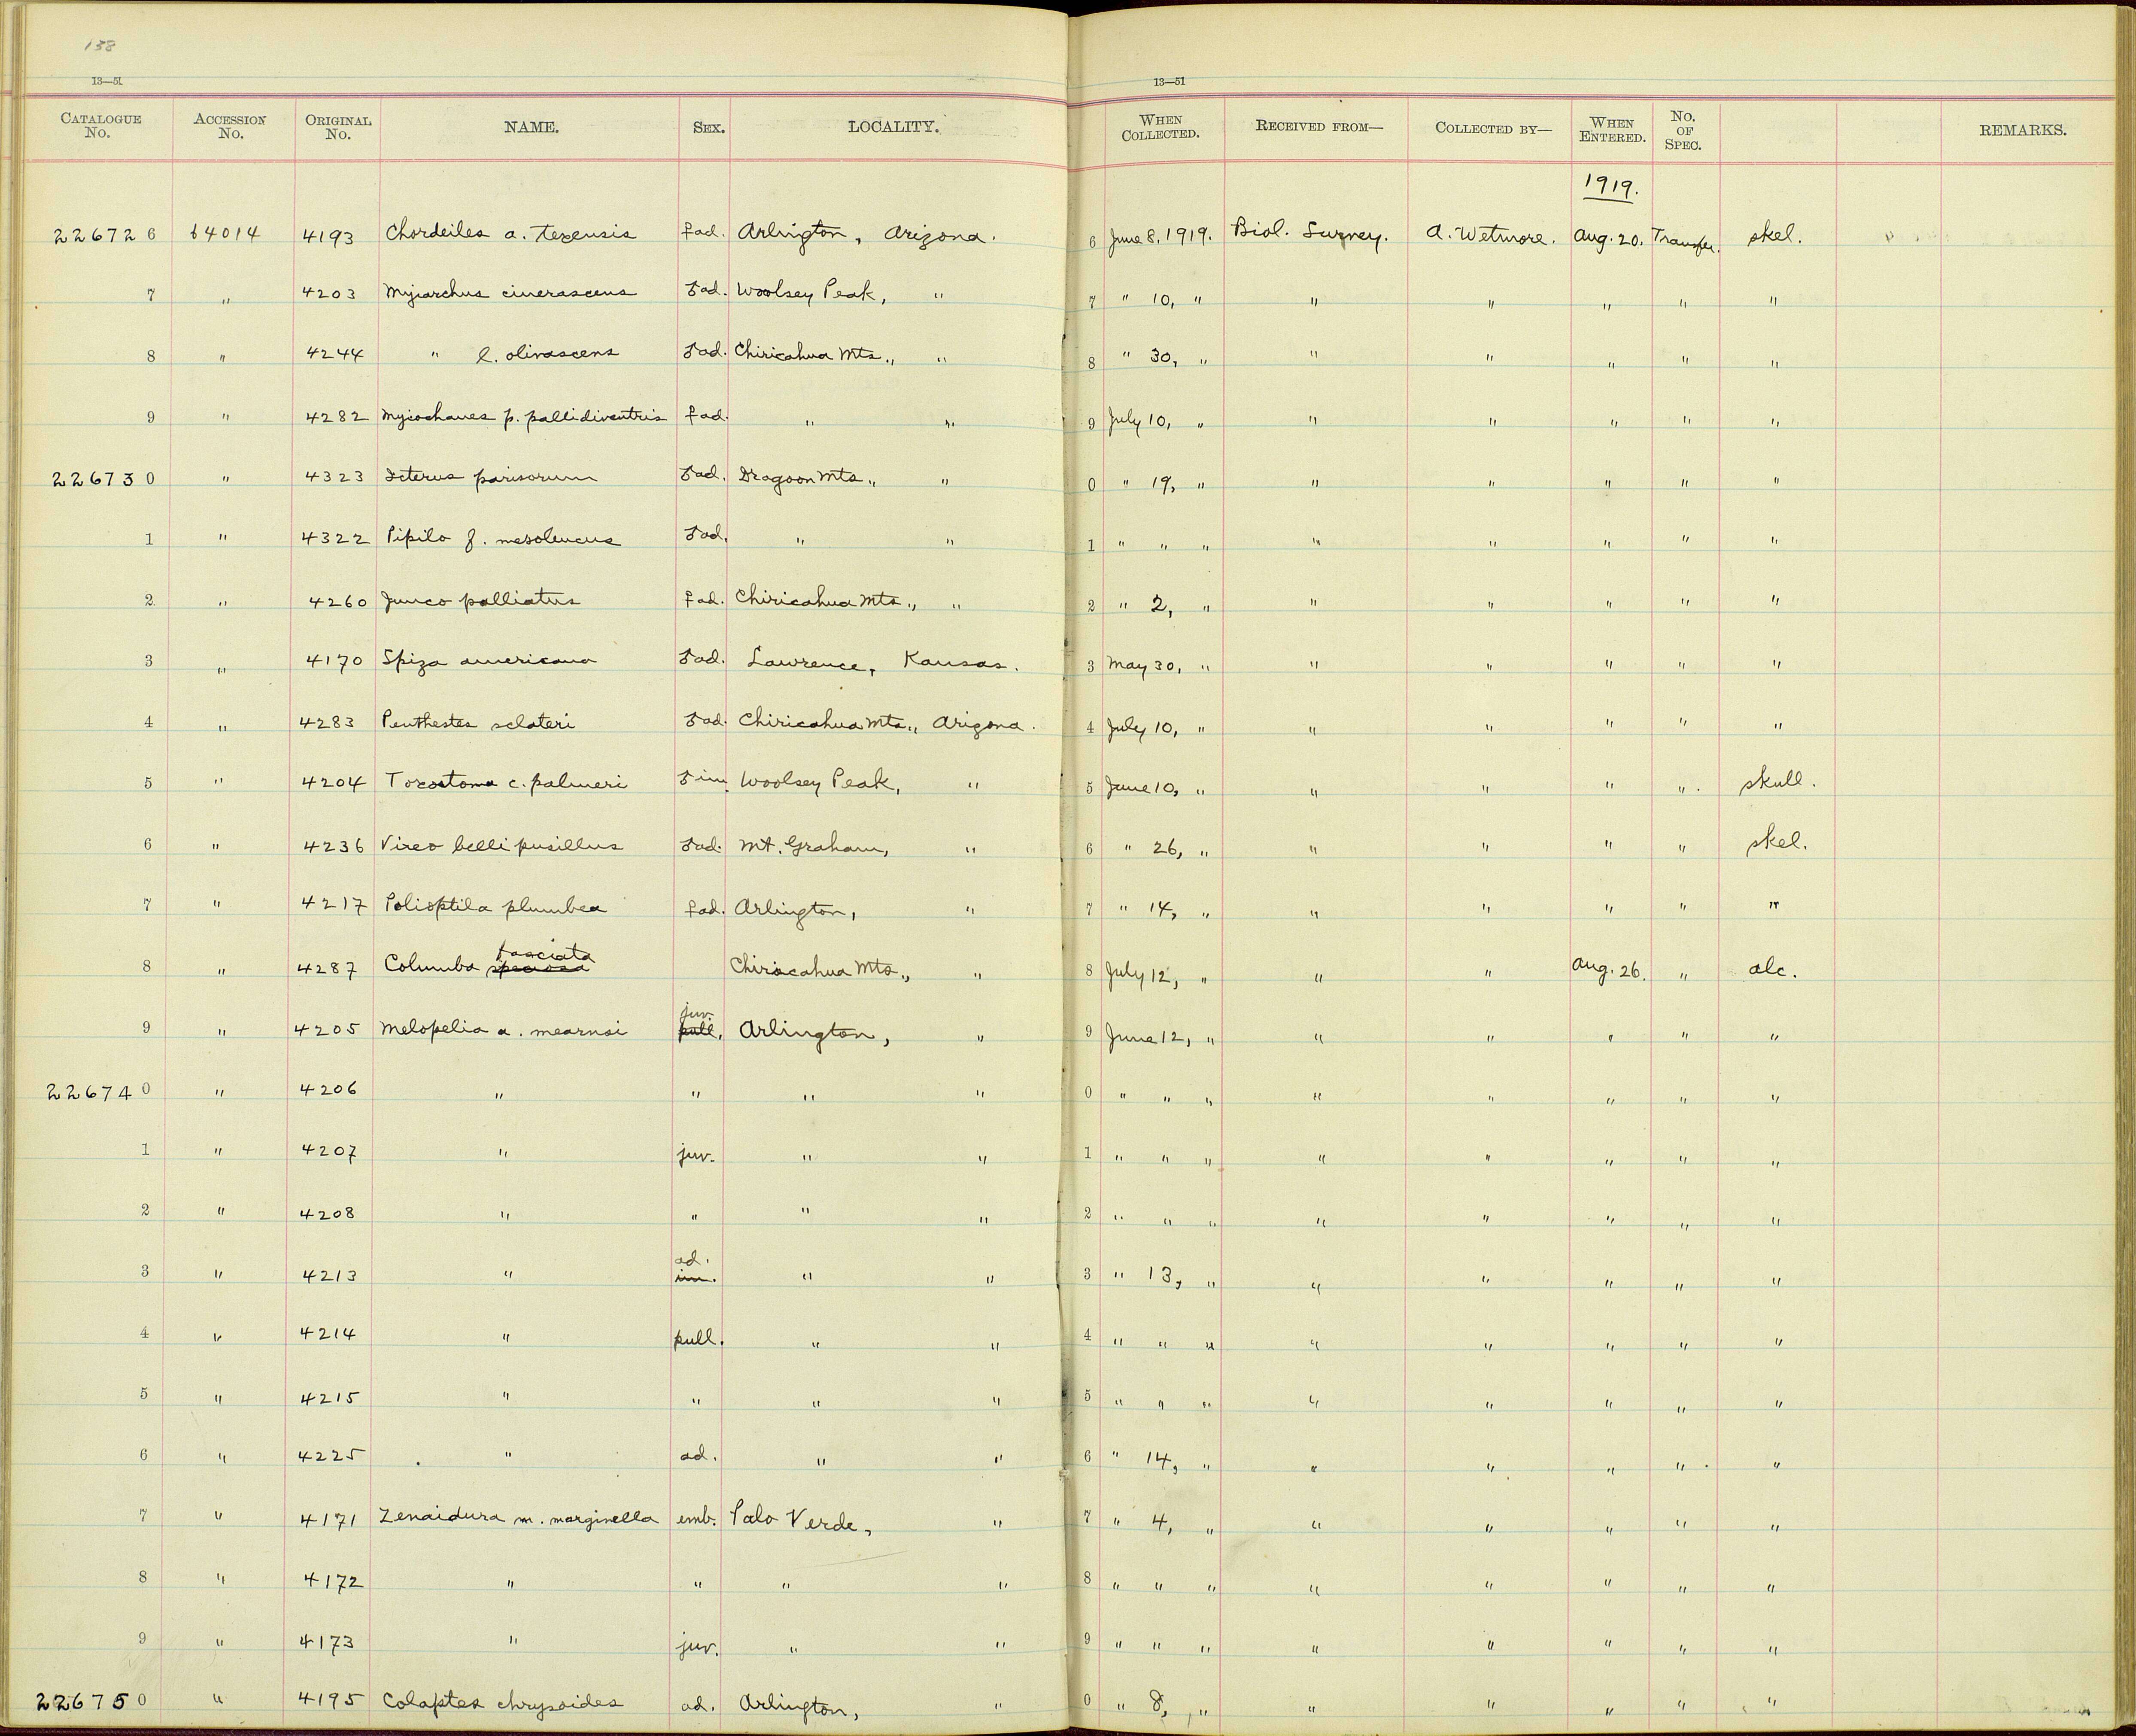 138
13—51 13—51
CATALOGUE No. ACCESSION No. ORIGINAL No. NAME. SEX. LOCALITY. WHEN COLLECTED. RECEIVED FROM— COLLECTED BY— WHEN ENTERED. No. OF SPEC. REMARKS.
1919.
226726 64014 4193 Chordeiles a. texensis ♀ad. Arlington, Arizona. 6 June 8, 1919. Biol. Survey. A. Wetmore. Aug. 20. Transfer. skel.
7 " 4203 Myiarchus cinerascens ♂ad. Woolsey Peak, " 7 " 10, " " " " " "
8 " 4244 " l. olivascens ♂ad. Chiricahua Mts., " 8 " 30, " " " " " "
9 " 4282 Myiochanes p. pallidiventris ♀ad. " " 9 July 10, " " " " " "
226730 " 4323 Icterus parisorum ♂ad. Dragoon Mts., " 0 " 19, " " " " " "
1 " 4322 Pipilo f. mesoleucus ♂ad. " " 1 " " " " " " " "
2 " 4260 Junco palliatus ♀ad. Chiricahua Mts., " 2 " 2, " " " " " "
3 " 4170 Spiza americana ♂ad. Lawrence, Kansas. 3 May 30, " " " " " "
4 " 4283 Penthestes sclateri ♂ad. Chiricahua Mts., Arizona. 4 July 10, " " " " " "
5 " 4204 Toxostoma c. palmeri ♂im. Woolsey Peak, " 5 June 10, " " " " " skull.
6 " 4236 Vireo belli pusillus ♂ad. Mt. Graham, " 6 " 26, " " " " " skel.
7 " 4217 Polioptila plumbea ♀ad. Arlington, " 7 " 14, " " " " " "
fasciata
8 " 4287 Columba speciosa Chiricahua Mts., " 8 July 12, " " " Aug. 26. " alc.
juv.
9 " 4205 Melopelia a. mearnsi pull. Arlington, " 9 June 12, " " " " " "
226740 " 4206 " " " " 0 " " " " " " " "
1 " 4207 " juv. " " 1 " " " " " " " "
2 " 4208 " " " " 2 " " " " " " " "
ad.
3 " 4213 " im. " " 3 " 13, " " " " " "
4 " 4214 " pull. " " 4 " " " " " " " "
5 " 4215 " " " " 5 " " " " " " " "
6 " 4225 " ad. " " 6 " 14, " " " " " "
7 " 4171 Zenaidura m. marginella emb. Palo Verde, " 7 " 4, " " " " " "
8 " 4172 " " " " 8 " " " " " " " "
9 " 4173 " juv. " " 9 " " " " " " " "
226750 " 4195 Colaptes chrysoides ad. Arlington, " 0 " 8, " " " " " "